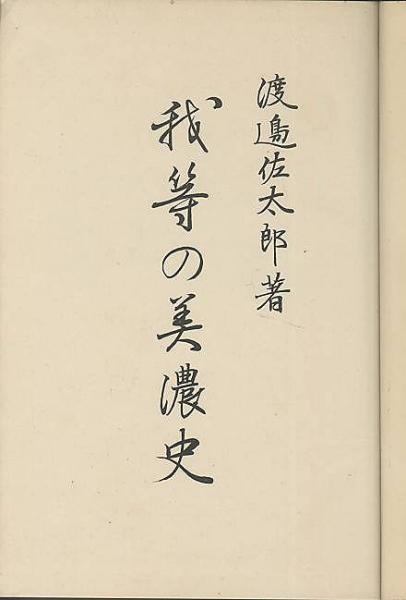 渡邊佐太郎著
我等の美濃史